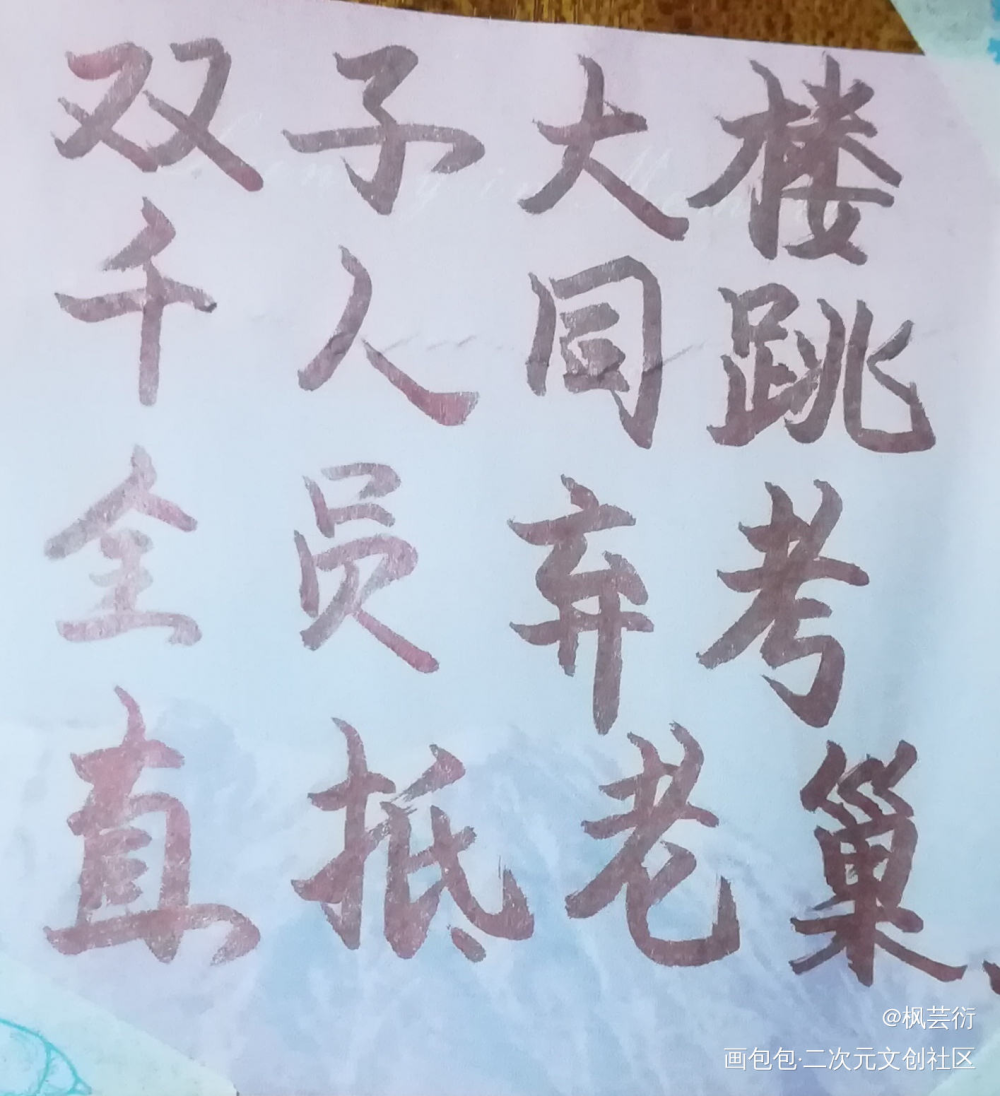 双子大楼
千人同跳
全员弃考
直抵老巢
@枫芸衍
画包包·二次元文创社区